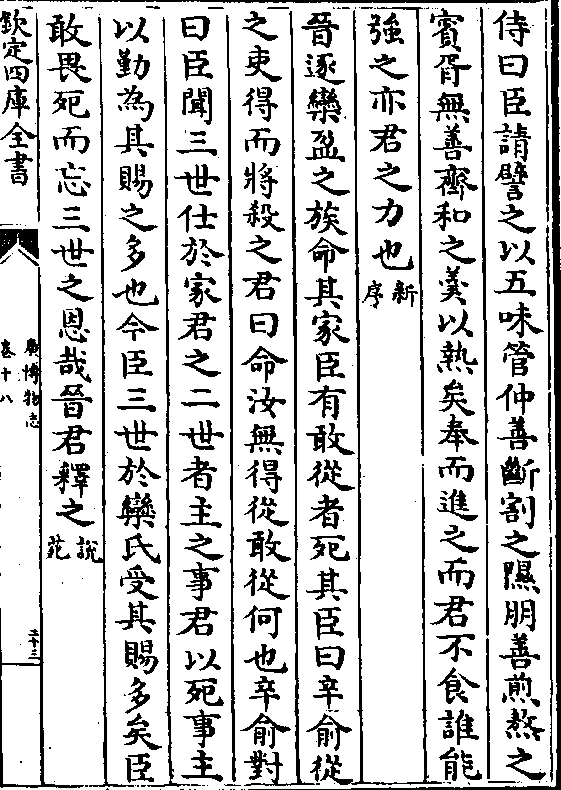 侍曰臣請譬之以五味管仲善斷割之隰朋善煎熬之
賓胥無善齊和之羮以熟矣奉而進之而君不食誰能
強之亦君之力也新序
晉逐欒盈之族命其家臣有敢從者死其臣曰辛俞從
之吏得而將殺之君曰命汝無得從敢從何也辛俞對
曰臣聞三世仕於家君之二世者主之事君以死事主
以勤為其賜之多也今臣三世於欒氏受其賜多矣臣
敢畏死而忘三世之恩哉晉君釋之說苑
欽定四庫全書
廣博物志
卷十八
二十三